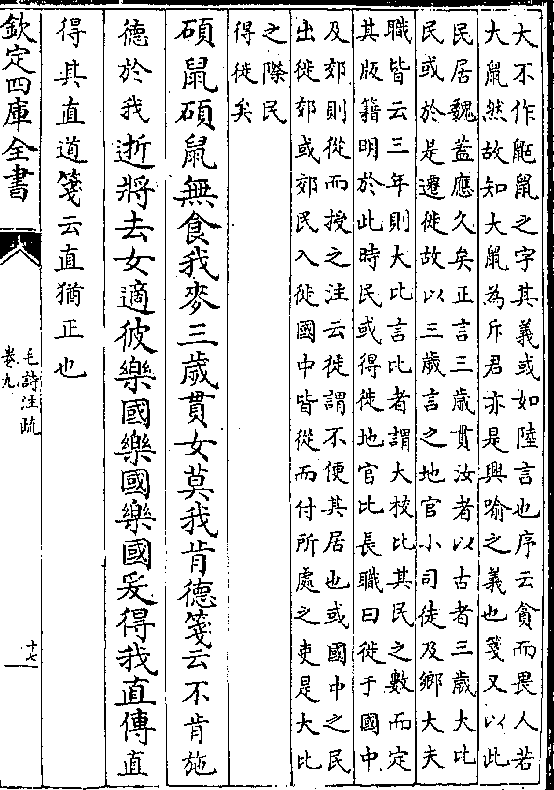 大不作鼫鼠之字其義或如陸言也序云貪而畏人若
大鼠然故知大鼠為斥君亦是興喻之義也箋又以此
民居魏蓋應久矣正言三歲貫汝者以古者三歲大比
民或於是遷徙故以三歲言之地官小司徒及鄉大夫
職皆云三年則大比言比者謂大校比其民之數而定
其版籍明於此時民或得徙地官比長職曰徙于國中
及郊則從而授之注云徙謂不便其居也或國中之民
出徙郊或郊民入徙國中皆從而付所處之吏是大比
之際民
得徙矣
碩鼠碩鼠無食我麥三歲貫女莫我肯德箋云不肯施
德於我逝將去女適彼樂國樂國樂國爰得我直傳直
得其直道箋云直猶正也
欽定四庫全書
毛詩注疏
卷九
十七